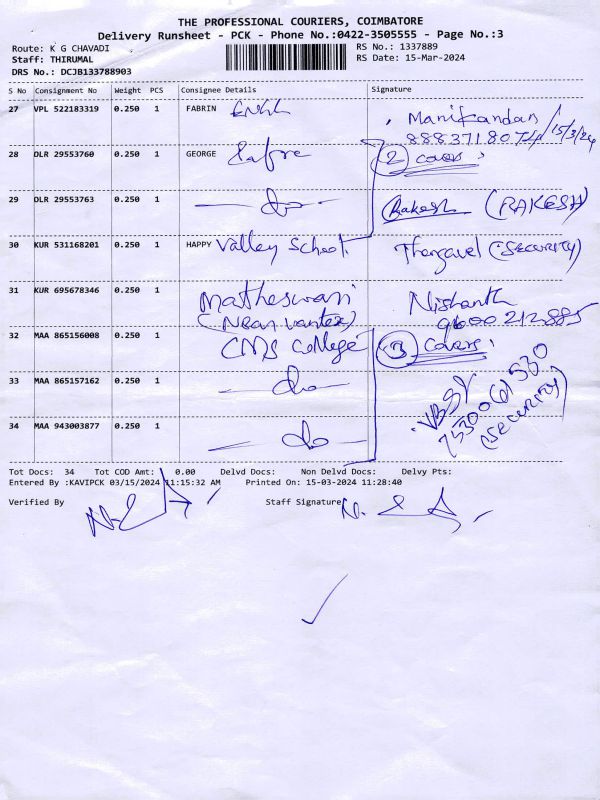 THE PROFESSIONAL COURIERS, COIMBATORE
Delivery Runsheet - PCK - Phone No.:0422-3505555 - Page No.:3
Route: K G CHAVADI
RS No.: 1337889
Staff: THIRUMAL
RS Date: 15-Mar-2024
DRS No.: DCJB133788903
S No Consignment No Weight PCS Consignee Details Signature
27 VPL 522183319 0.250 1 FABRIN
Manikandan
15/3/24
28 DLR 29553760 0.250 1 GEORGE
(2) covers.
29 DLR 29553763 0.250 1 do Rakesh (RAKESH)
30 KUR 531168201 0.250 1 HAPPY Valley School. Thangavel (Security)
31 KUR 695678346 0.250 1 Matheswari Nishanth
(Near Vantex) 9600212885
32 MAA 865156008 0.250 1 CMS College (3) covers.
33 MAA 865157162 0.250 1 do
(SECURITY)
34 MAA 943003877 0.250 1 do
Tot Docs: 34 Tot COD Amt: 0.00 Delvd Docs: Non Delvd Docs: Delvy Pts:
Entered By :KAVIPCK 03/15/2024 11:15:32 AM Printed On: 15-03-2024 11:28:40
Verified By Staff Signature